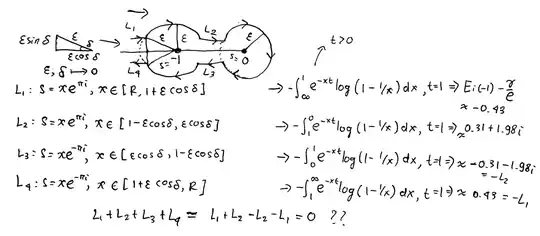 L₁ ε ε L₂ t>0
εsinδ ε δ
εcosδ L₄ s=-1 L₃ s=0
ε, δ → 0
L₁: s = xe^{πi}, x∈[R, 1+εcosδ] → -∫_∞^1 e^{-xt} log(1-1/x) dx, t=1 ⇒ Ei(-1) - γ/e ≈ -0.43
L₂: s = xe^{πi}, x∈[1-εcosδ, εcosδ] → -∫_1^0 e^{-xt} log(1-1/x) dx, t=1 ⇒ ≈ 0.31+1.98i
L₃: s = xe^{-πi}, x∈[εcosδ, 1-εcosδ] → -∫_0^1 e^{-xt} log(1-1/x) dx, t=1 ⇒ ≈ -0.31-1.98i = -L₂
L₄: s = xe^{-πi}, x∈[1+εcosδ, R] → -∫_1^∞ e^{-xt} log(1-1/x) dx, t=1 ⇒ ≈ 0.43 = -L₁
L₁+L₂+L₃+L₄ ≃ L₁+L₂-L₂-L₁ = 0 ??